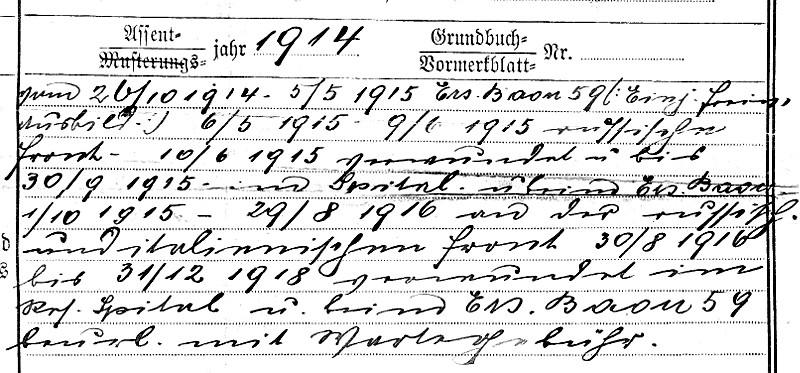 Assent-
Musterungs- jahr 1914 Grundbuch-
Vormerkblatt- Nr.
vom 26/10 1914 - 5/5 1915 Ers. Baon 59 (: Einj. Freiw.
Ausbild. :) 6/5 1915 - 9/6 1915 russische
Front - 10/6 1915 verwundet u bis
30/9 1915 - im Spital u beim Ers. Baon
1/10 1915 - 29/8 1916 an der russisch.
und italienischen Front 30/8 1916
bis 31/12 1918 verwundet im
Res. Spital u. beim Ers. Baon 59
beurl. mit Wartegebühr.